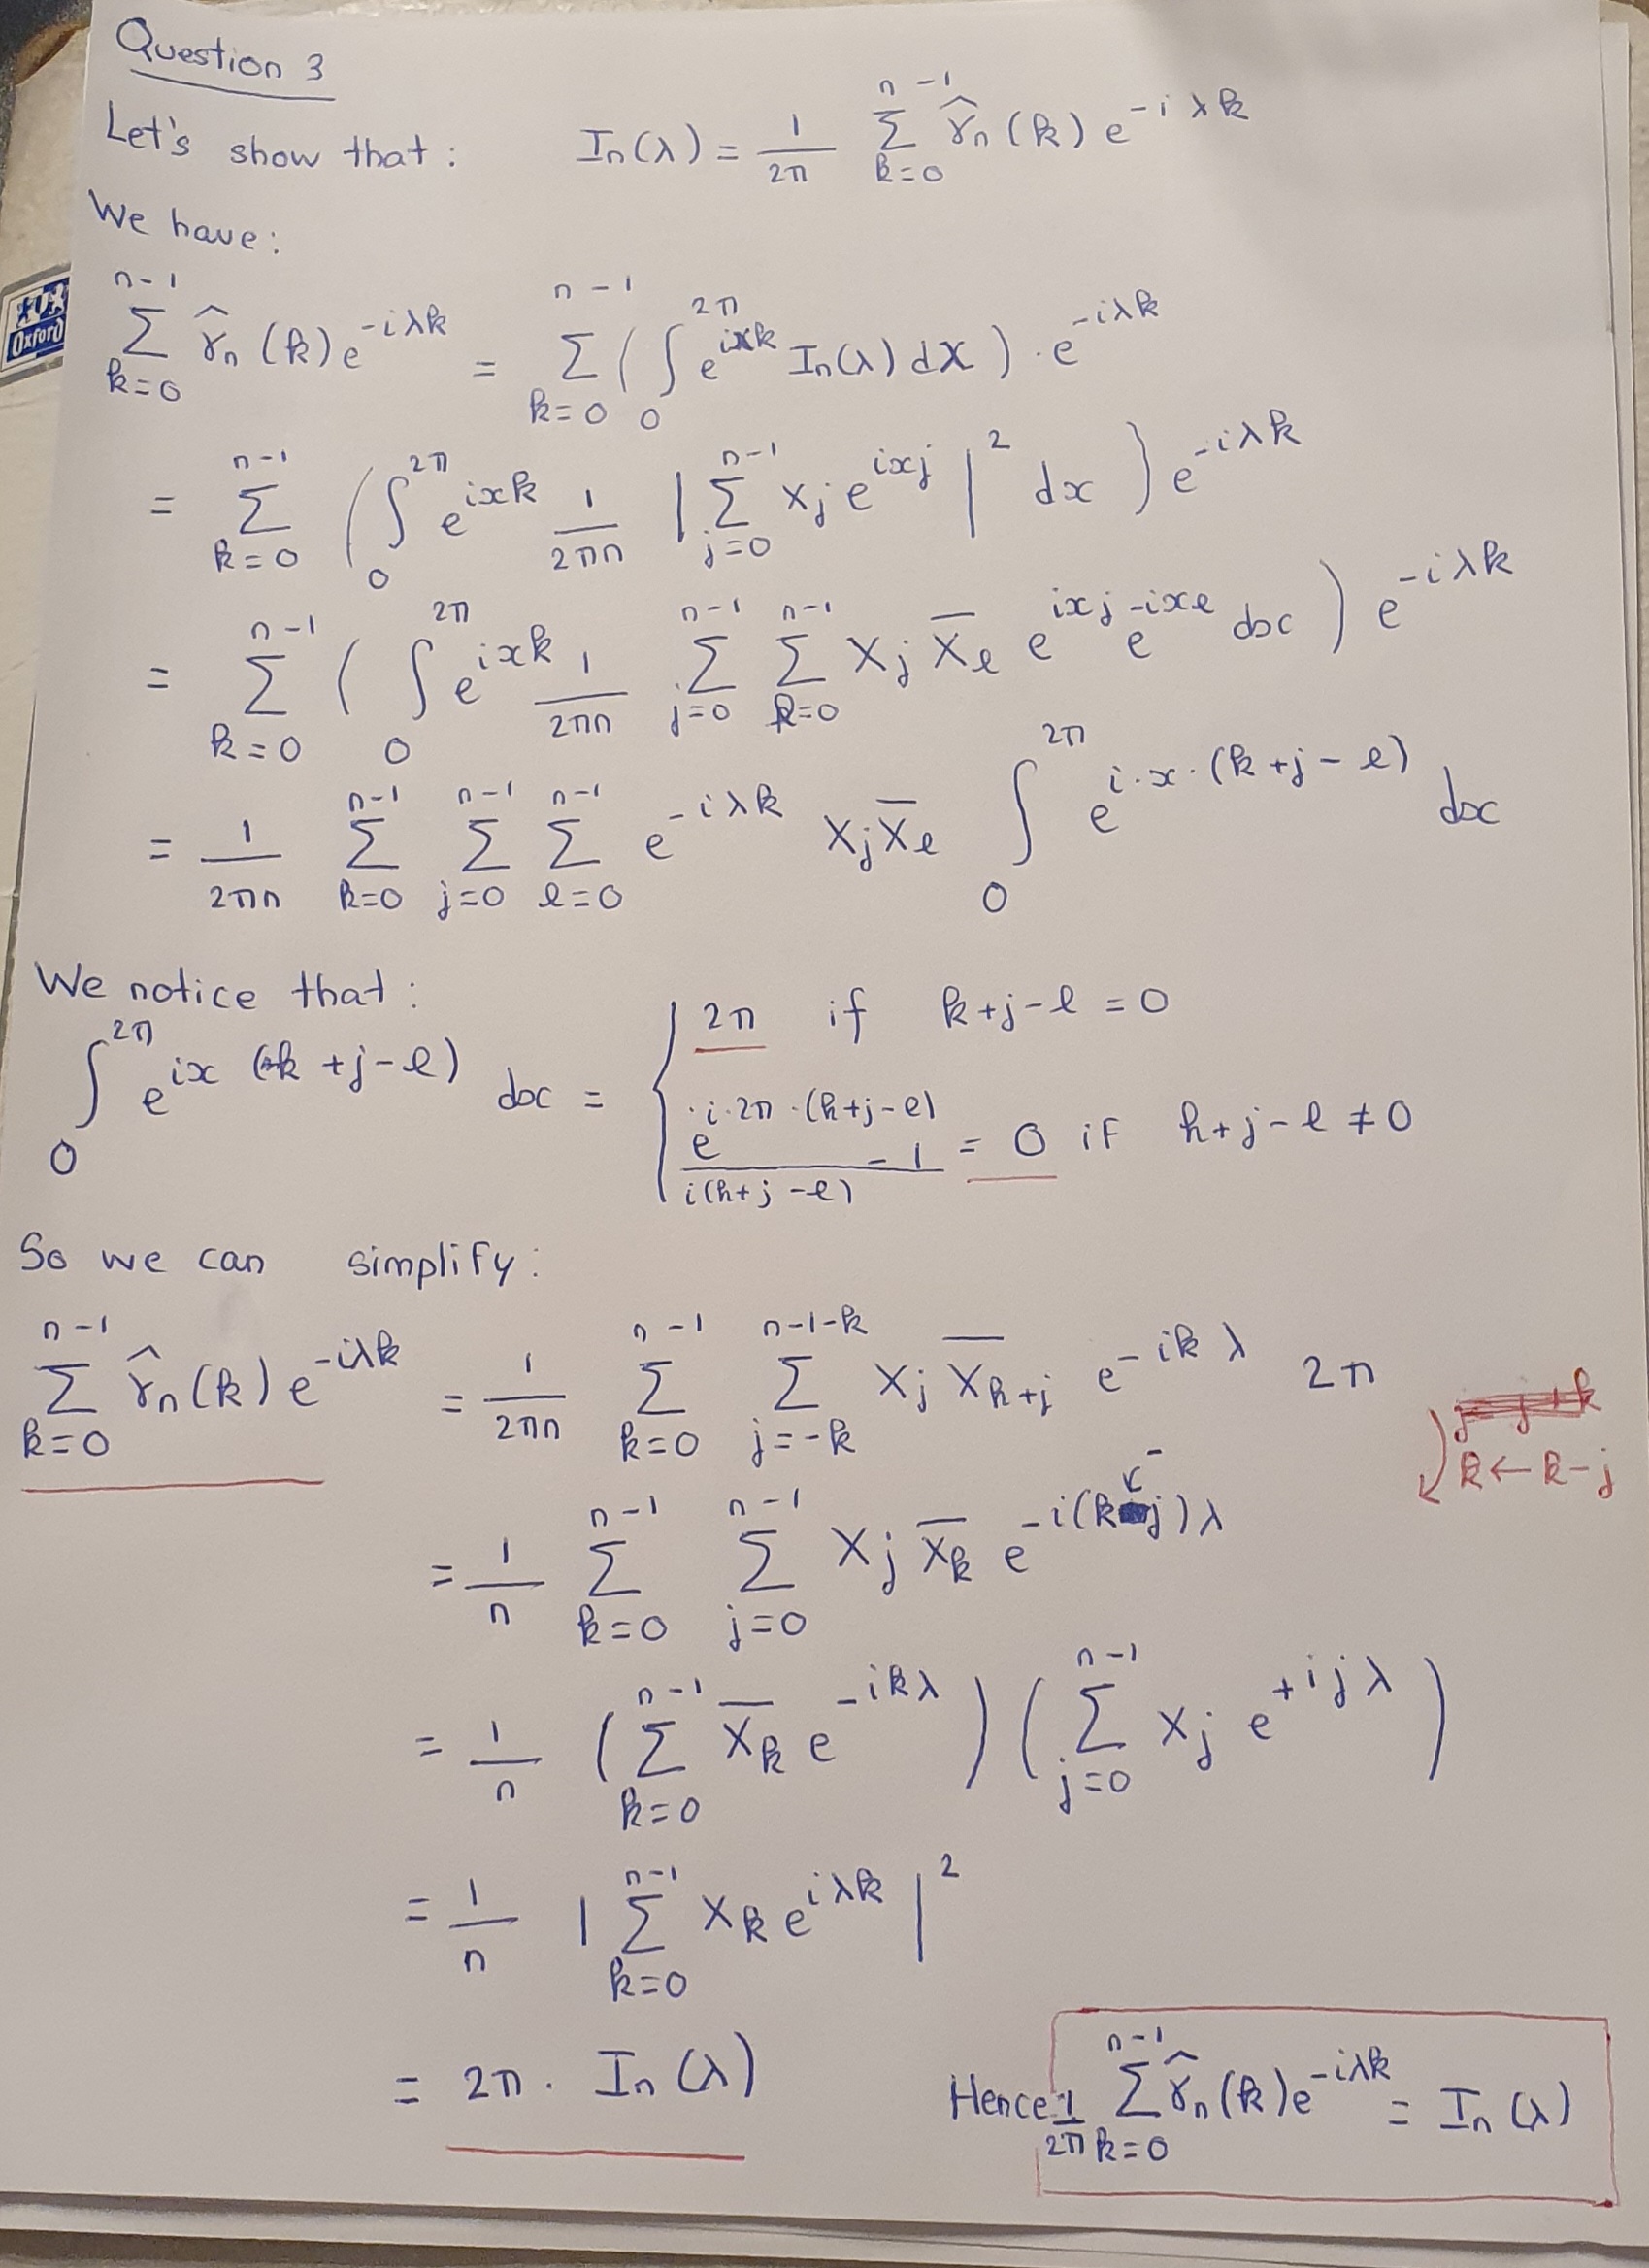 Question 3
Let's show that : I_n(λ) = 1/2π Σ_{k=0}^{n-1} γ̂_n(k) e^{-iλk}
We have :
Σ_{k=0}^{n-1} γ̂_n(k) e^{-iλk} = Σ_{k=0}^{n-1} ( ∫_0^{2π} e^{ixk} I_n(λ) dx ) · e^{-iλk}
Oxford
= Σ_{k=0}^{n-1} ( ∫_0^{2π} e^{ixk} 1/2πn | Σ_{j=0}^{n-1} X_j e^{ixj} |^2 dx ) e^{-iλk}
= Σ_{k=0}^{n-1} ( ∫_0^{2π} e^{ixk} 1/2πn Σ_{j=0}^{n-1} Σ_{k=0}^{n-1} X_j X̅_ℓ e^{ixj} e^{-ixℓ} dx ) e^{-iλk}
= 1/2πn Σ_{k=0}^{n-1} Σ_{j=0}^{n-1} Σ_{ℓ=0}^{n-1} e^{-iλk} X_j X̅_ℓ ∫_0^{2π} e^{i·x·(k+j-ℓ)} dx
We notice that :
∫_0^{2π} e^{ix(k+j-ℓ)} dx = { 2π if k+j-ℓ = 0
e^{i·2π·(k+j-ℓ)} - 1 / i(k+j-ℓ) = 0 if k+j-ℓ ≠ 0
So we can simplify :
Σ_{k=0}^{n-1} γ̂_n(k) e^{-iλk} = 1/2πn Σ_{k=0}^{n-1} Σ_{j=-k}^{n-1-k} X_j X̅_{k+j} e^{-ikλ} 2π
k ← k-j
= 1/n Σ_{k=0}^{n-1} Σ_{j=0}^{n-1} X_j X̅_k e^{-i(k-j)λ}
= 1/n ( Σ_{k=0}^{n-1} X̅_k e^{-ikλ} ) ( Σ_{j=0}^{n-1} X_j e^{+ijλ} )
= 1/n | Σ_{k=0}^{n-1} X_k e^{iλk} |^2
= 2π · I_n(λ)
Hence 1/2π Σ_{k=0}^{n-1} γ̂_n(k) e^{-iλk} = I_n(λ)